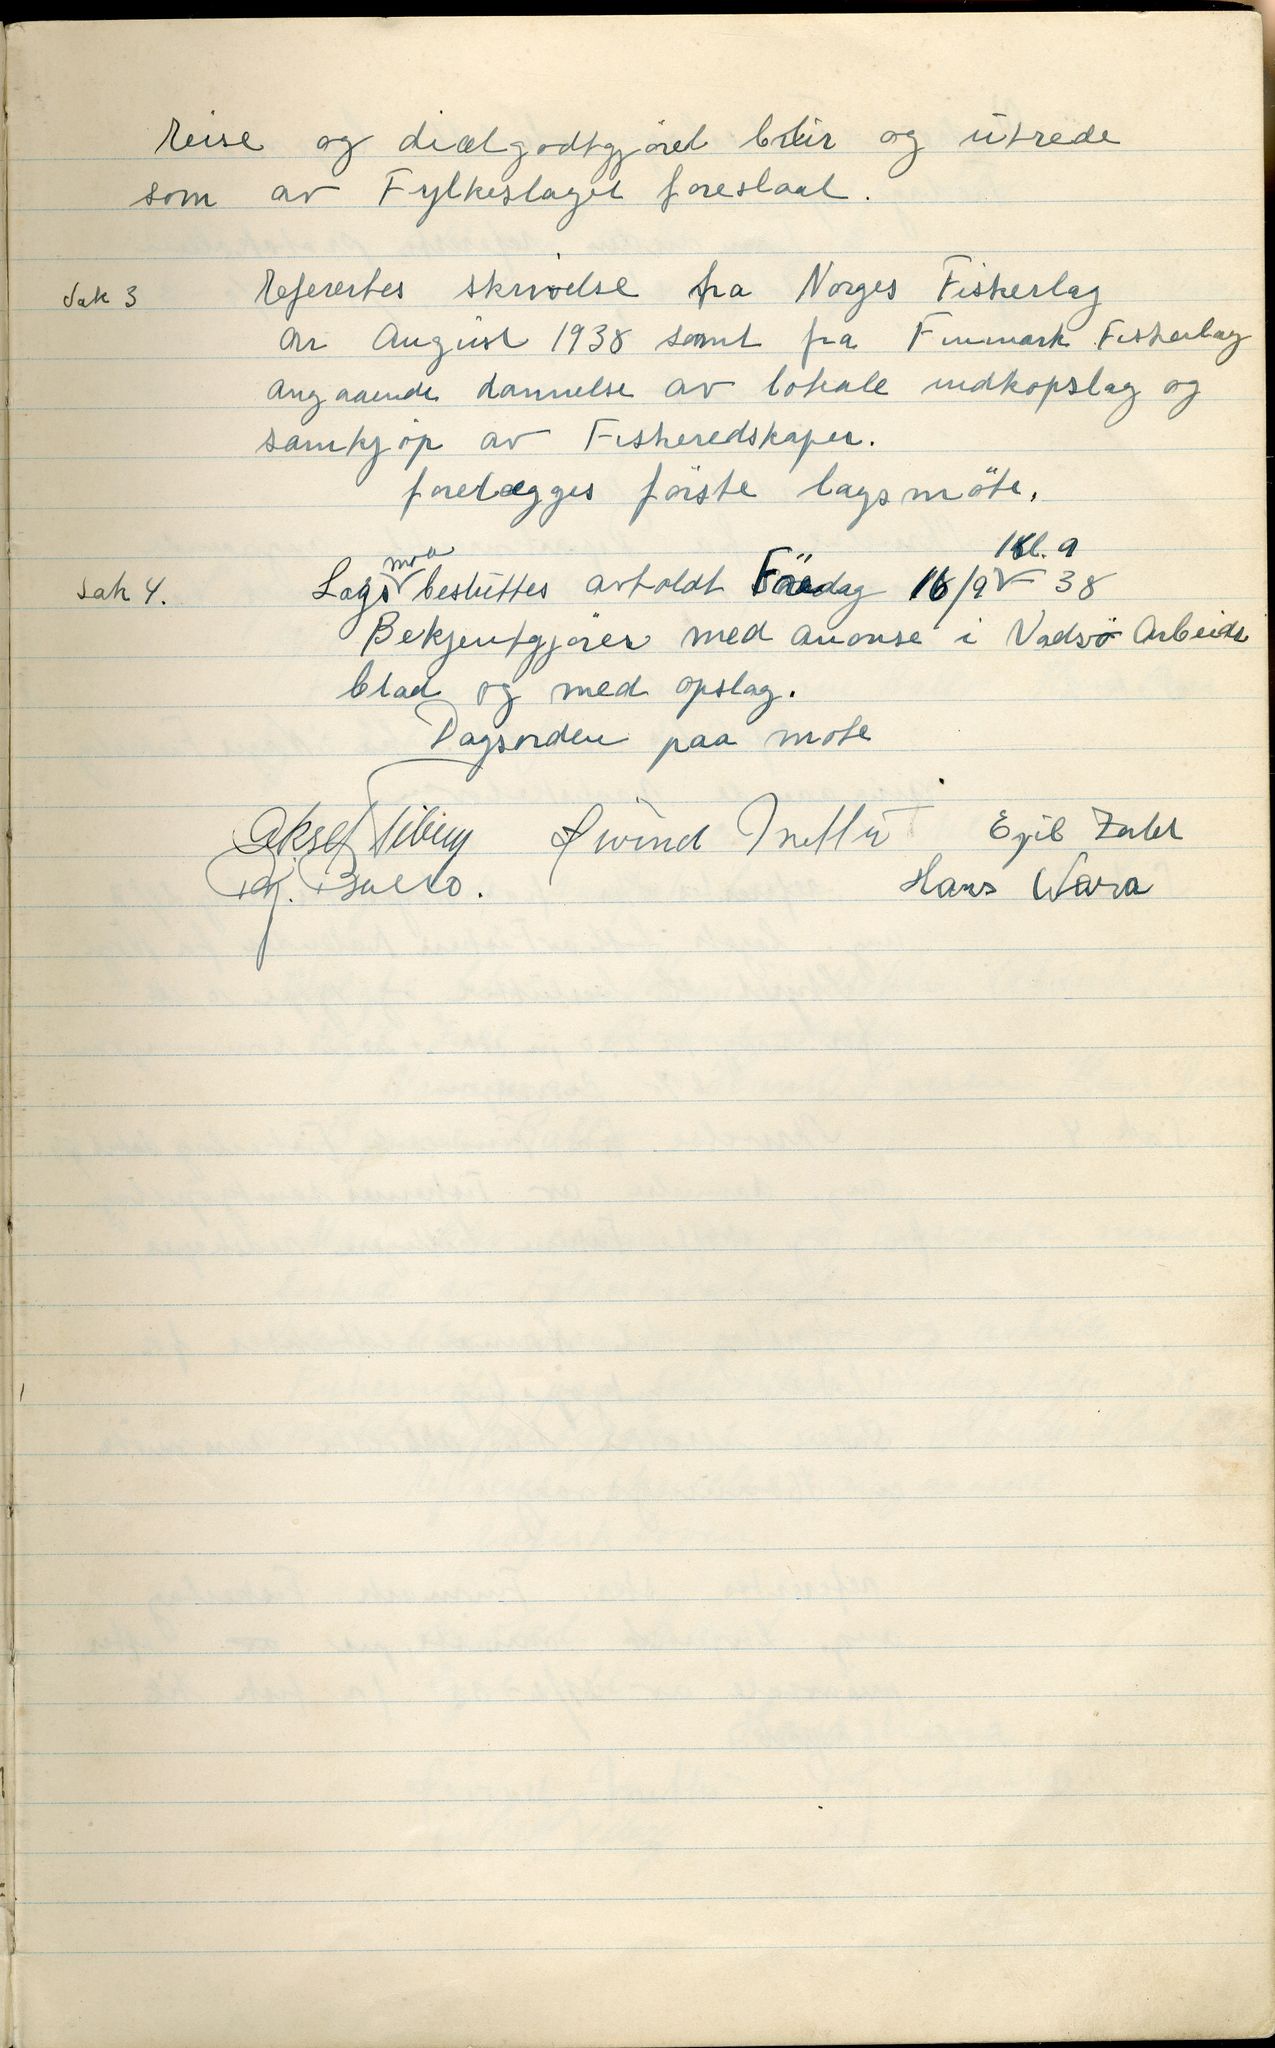 Reise og diætgodtgjörel blir og utrede
som av Fylkeslaget foreslaat.
Sak 3 Referertes skrivelse fra Norges Fiskerlag
av August 1938 samt fra Finmark Fiskerlag
angaaende dannelse av lokale indkopslag og
samkjöp av Fiskeredskaper.
forelægges förste lagsmöte.
Kl. 9
Sak 4. Lags besluttes avholdt 16/9 38
Bekjentgjöres med anonse i Vadsö Arbeids
blad og med opslag.
Dagsorden paa mote
Aksel Øivind Egil
Hans Wara